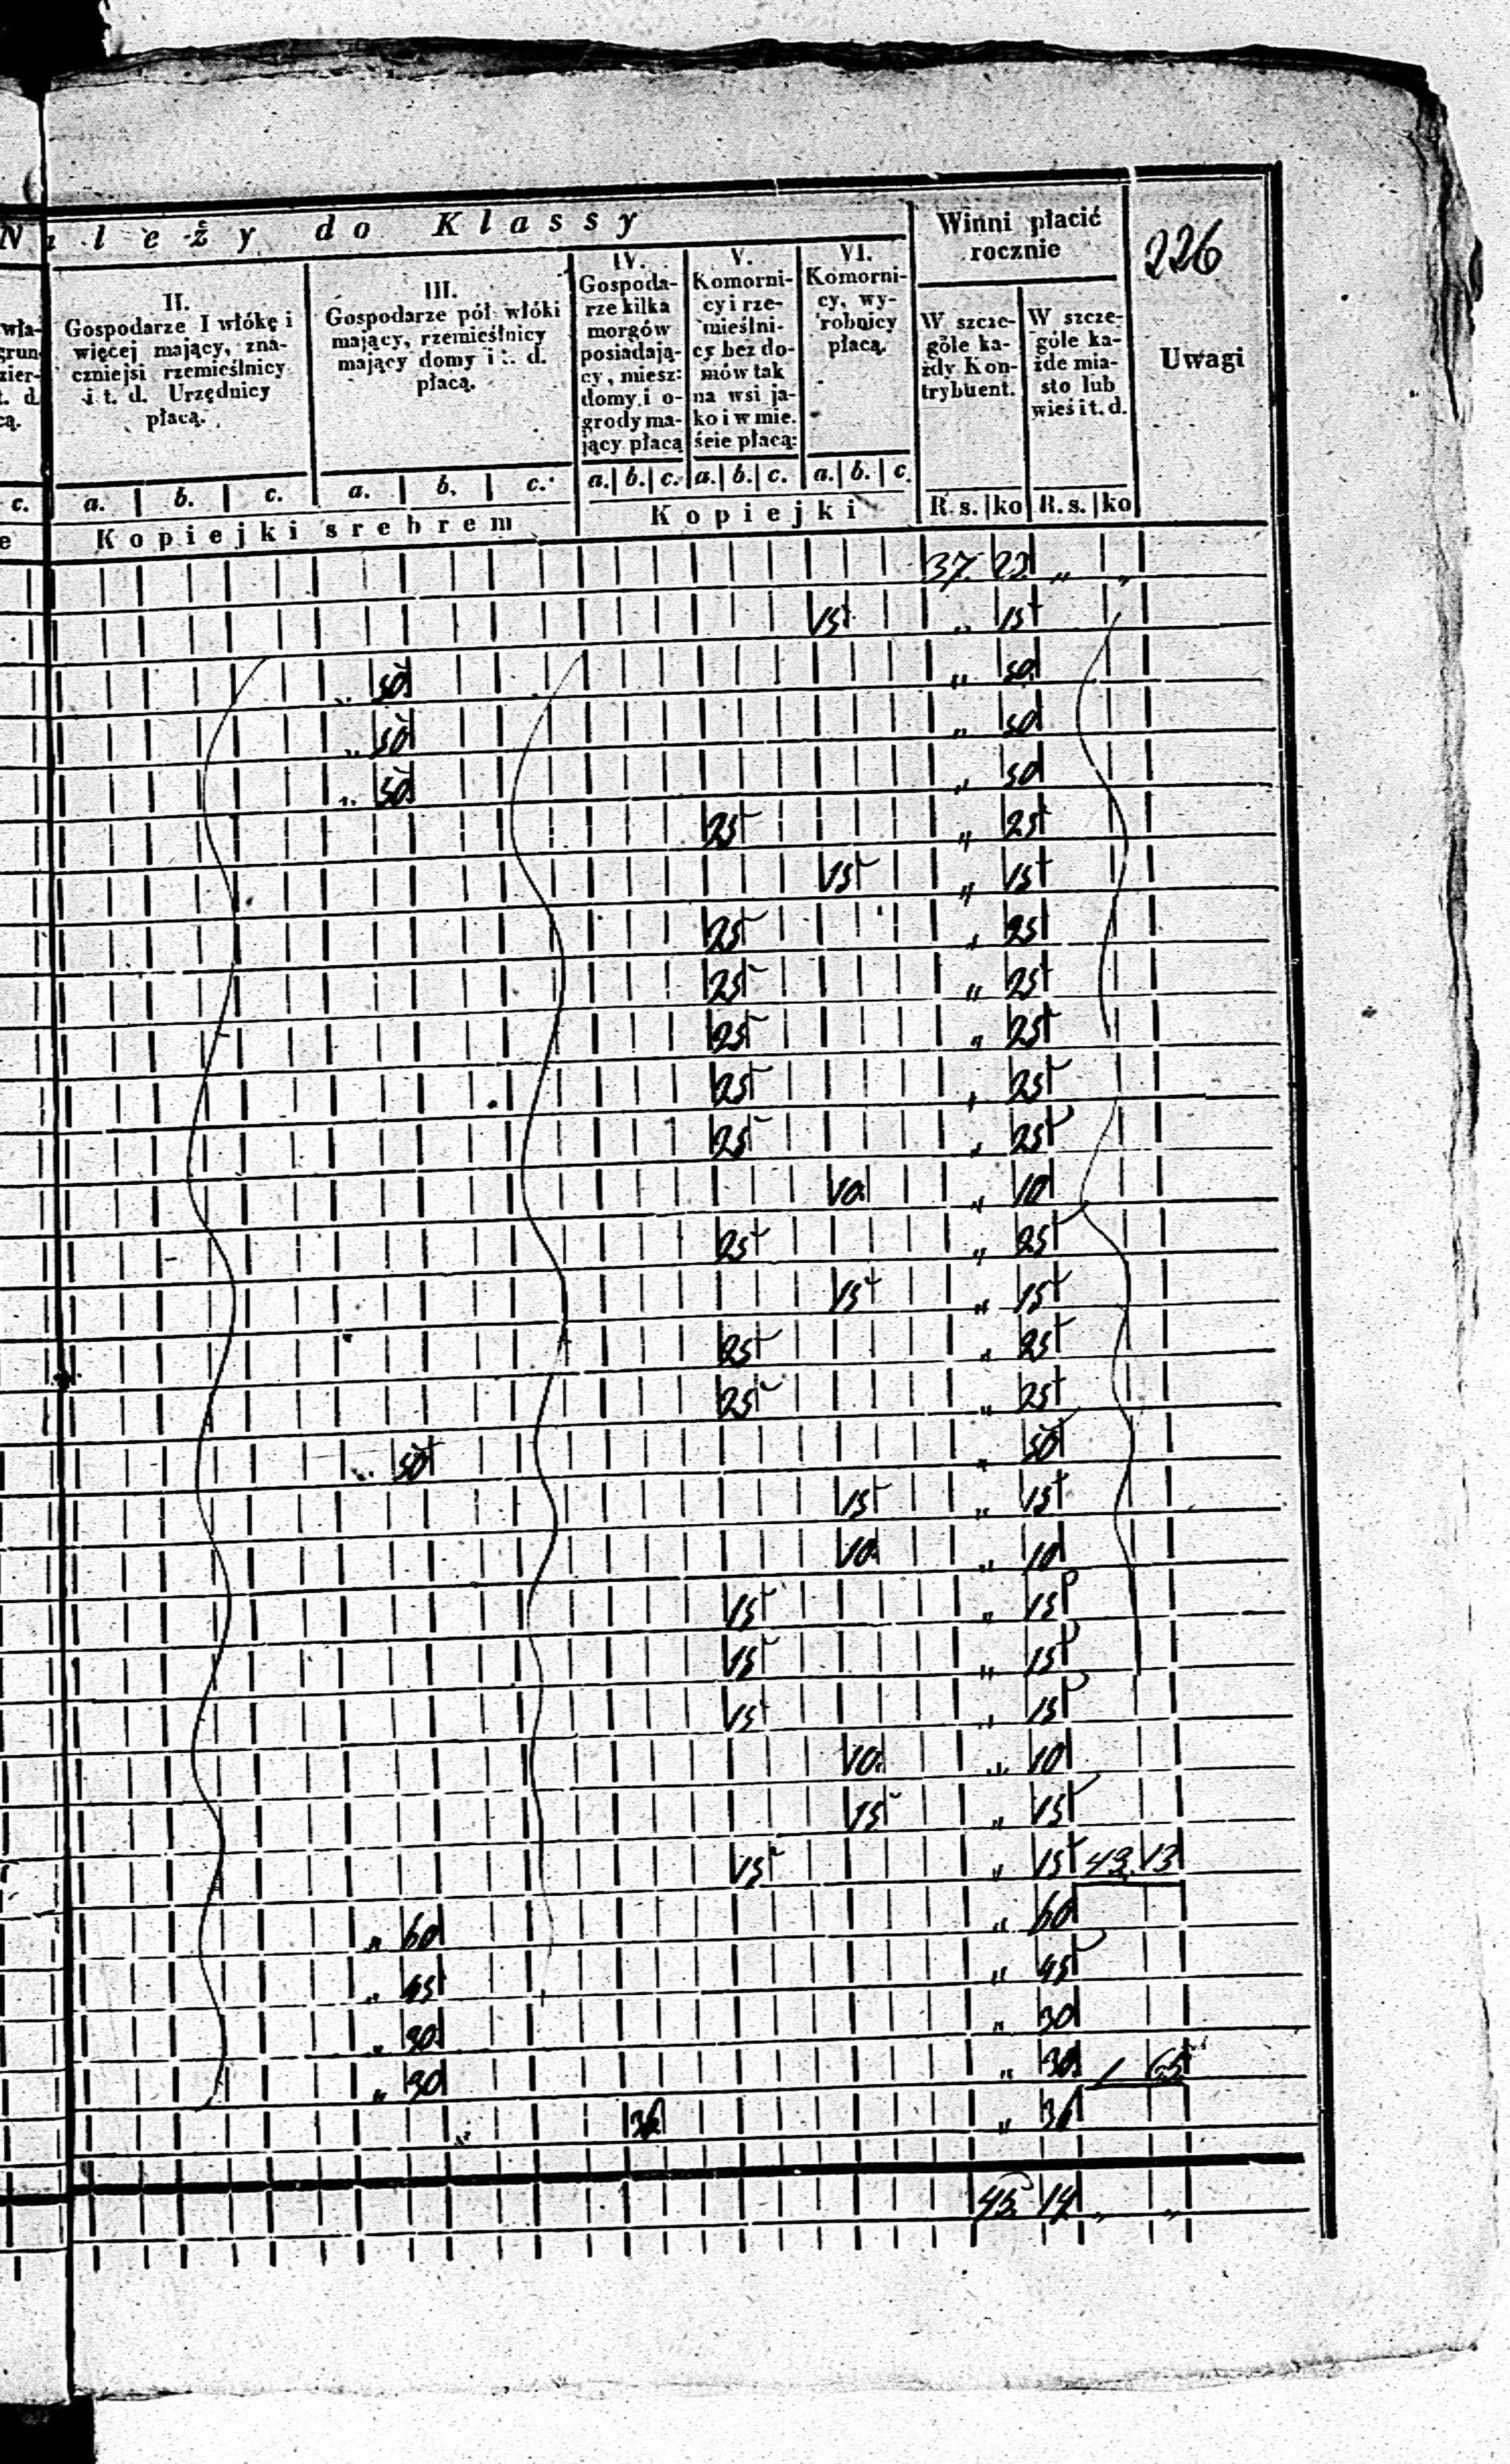 N a l e ż y d o K l a s s y
Winni płacić rocznie
226
II.
Gospodarze I włókę i
więcej mający, zna-
czniejsi rzemieślnicy
i t. d. Urzędnicy
płacą.
III.
Gospodarze pół włóki
mający, rzemieślnicy
mający domy i t. d.
płacą.
IV.
Gospoda-
rze kilka
morgów
posiadają-
cy, miesz:
domy i o-
grody ma-
jący płacą
V.
Komorni-
cy i rze-
mieślni-
cy bez do-
mów tak
na wsi ja-
ko i w mie.
ście płacą:
VI.
Komorni-
cy, wy-
robnicy
płacą.
W szcze-
góle ka-
żdy Kon-
trybuent.
W szcze-
góle ka-
żde mia-
sto lub
wieś i t. d.
Uwagi
wła-
grun
zier-
t. d.
cą.
c. a. b. c. a. b. c. a. b. c. a. b. c. a. b. c.
e K o p i e j k i s r e b r e m K o p i e j k i R. s. ko R. s. ko
37. 22 „ „
15 „ 15
„ 50 „ 50
„ 50 „ 50
„ 50 „ 50
25 „ 25
15 „ 15
25 „ 25
25 „ 25
25 „ 25
25 „ 25
25 „ 25
10 „ 10
25 „ 25
15 „ 15
25 „ 25
25 „ 25
„ 50 „ 50
15 „ 15
10 „ 10
15 „ 15
15 „ 15
15 „ 15
10 „ 10
15 „ 15
15 „ 15 43. 13
„ 60 „ 60
„ 45 „ 45
„ 30 „ 30
„ 30 „ 30 1 65
36 „ 36
45 14 „ „